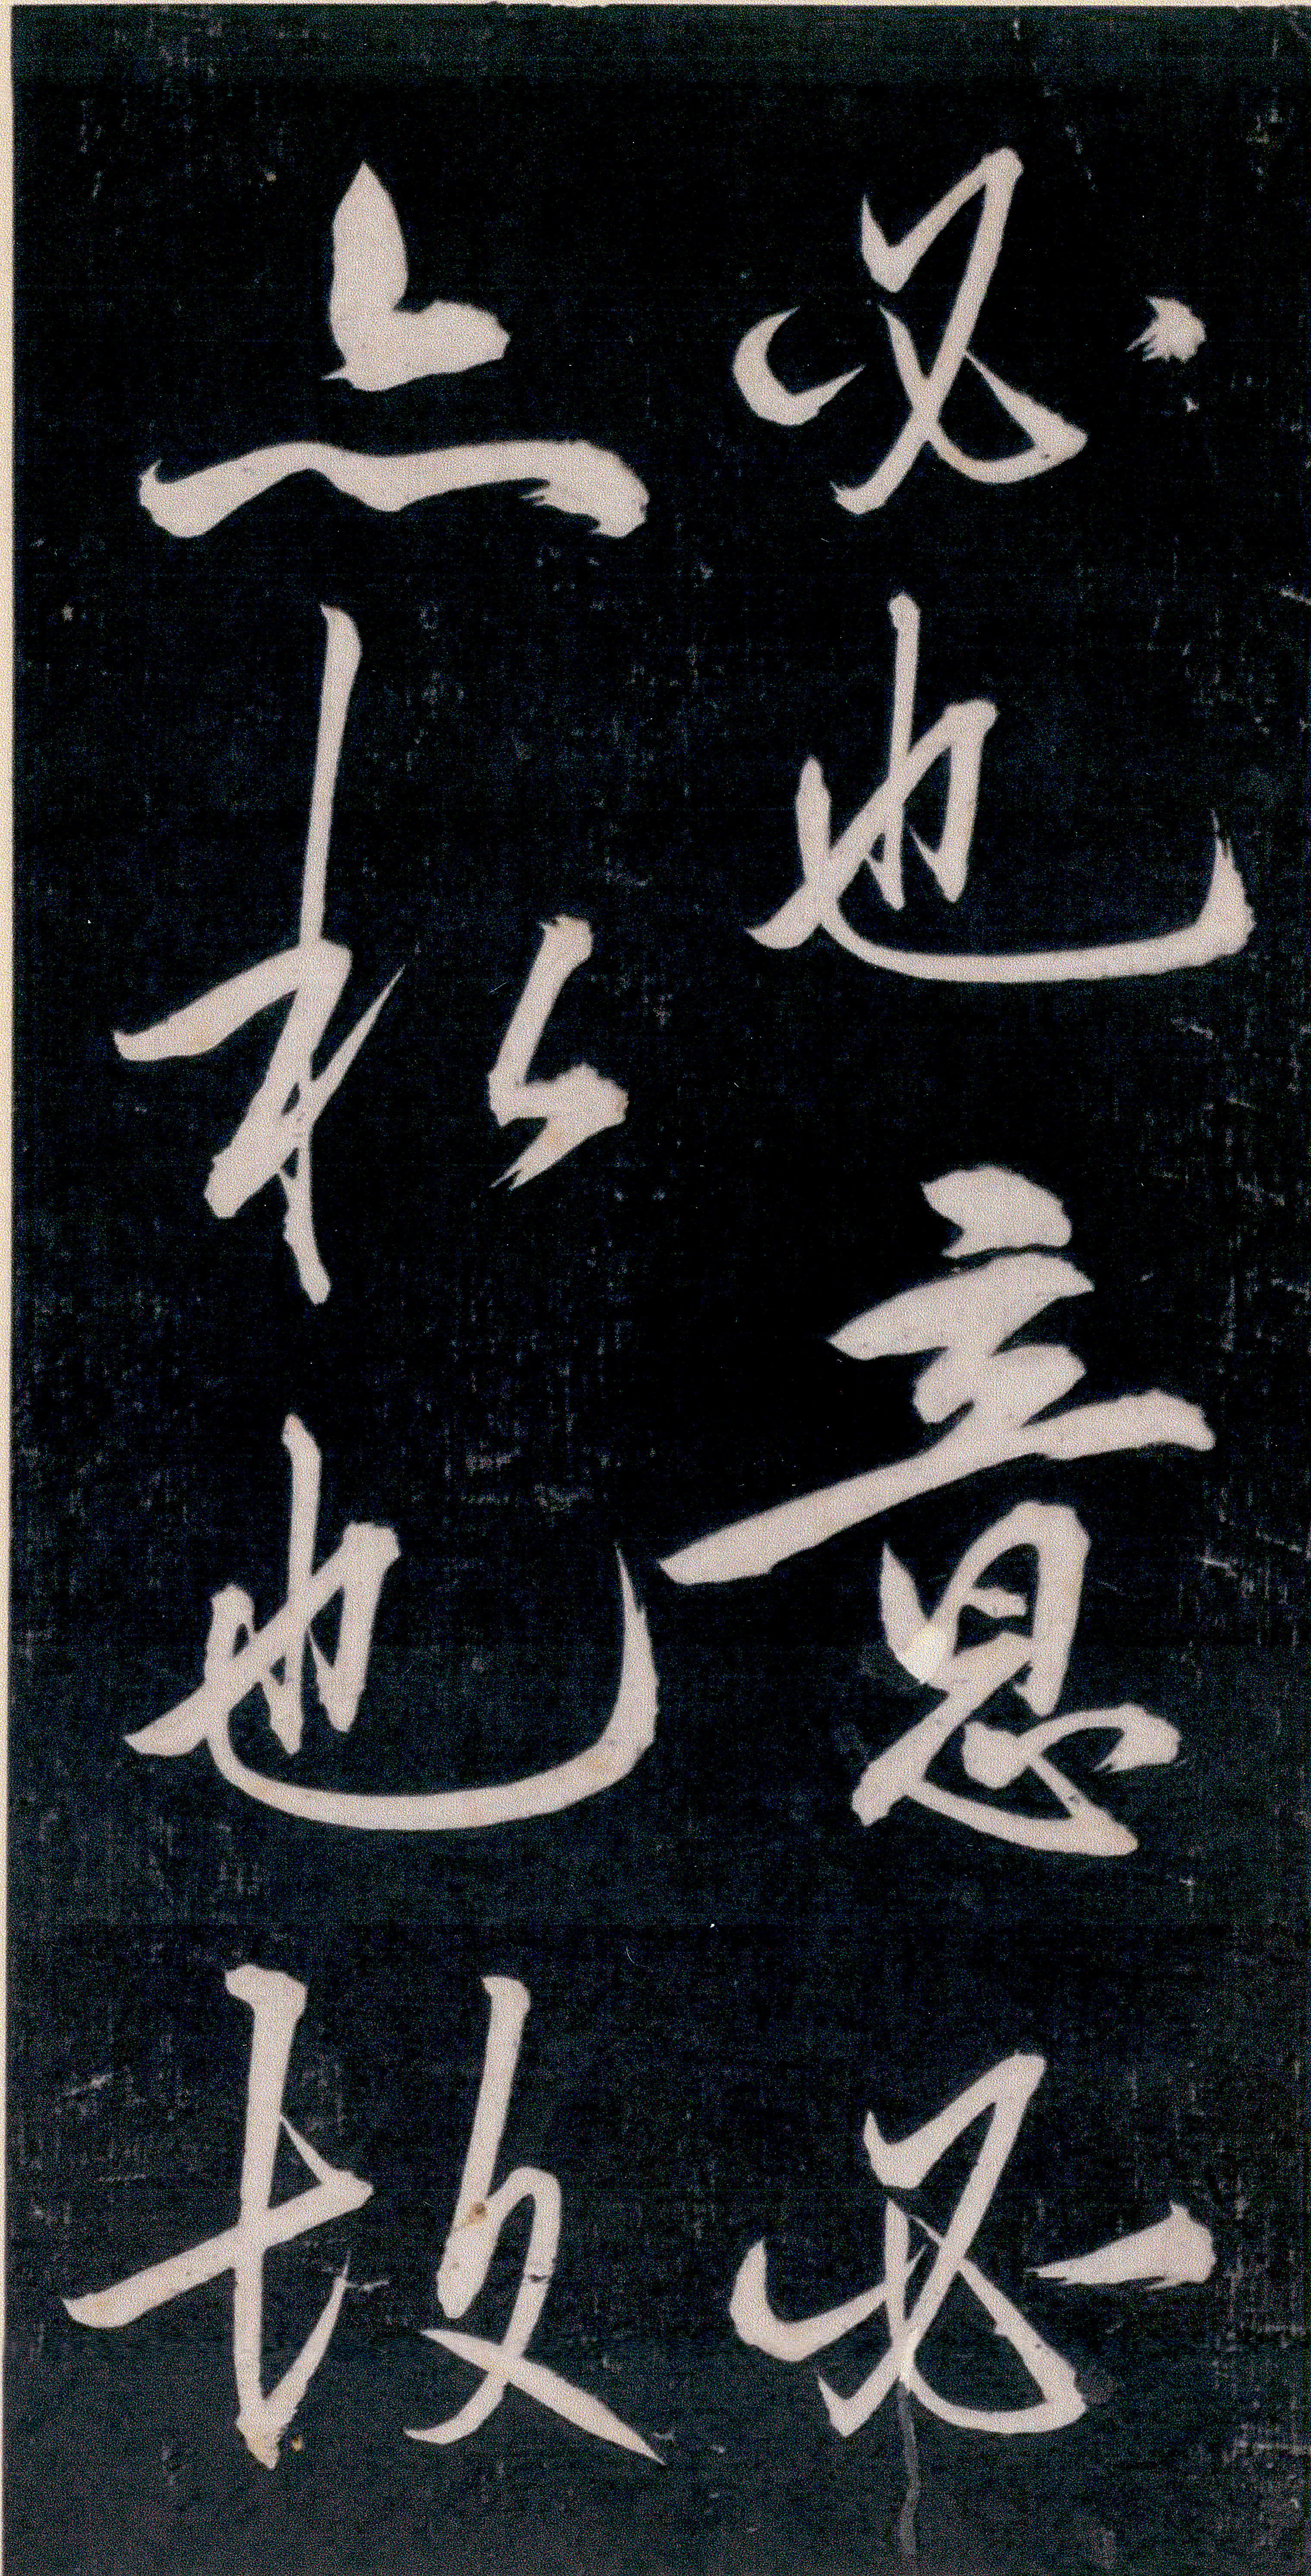 必也意必
之私也故